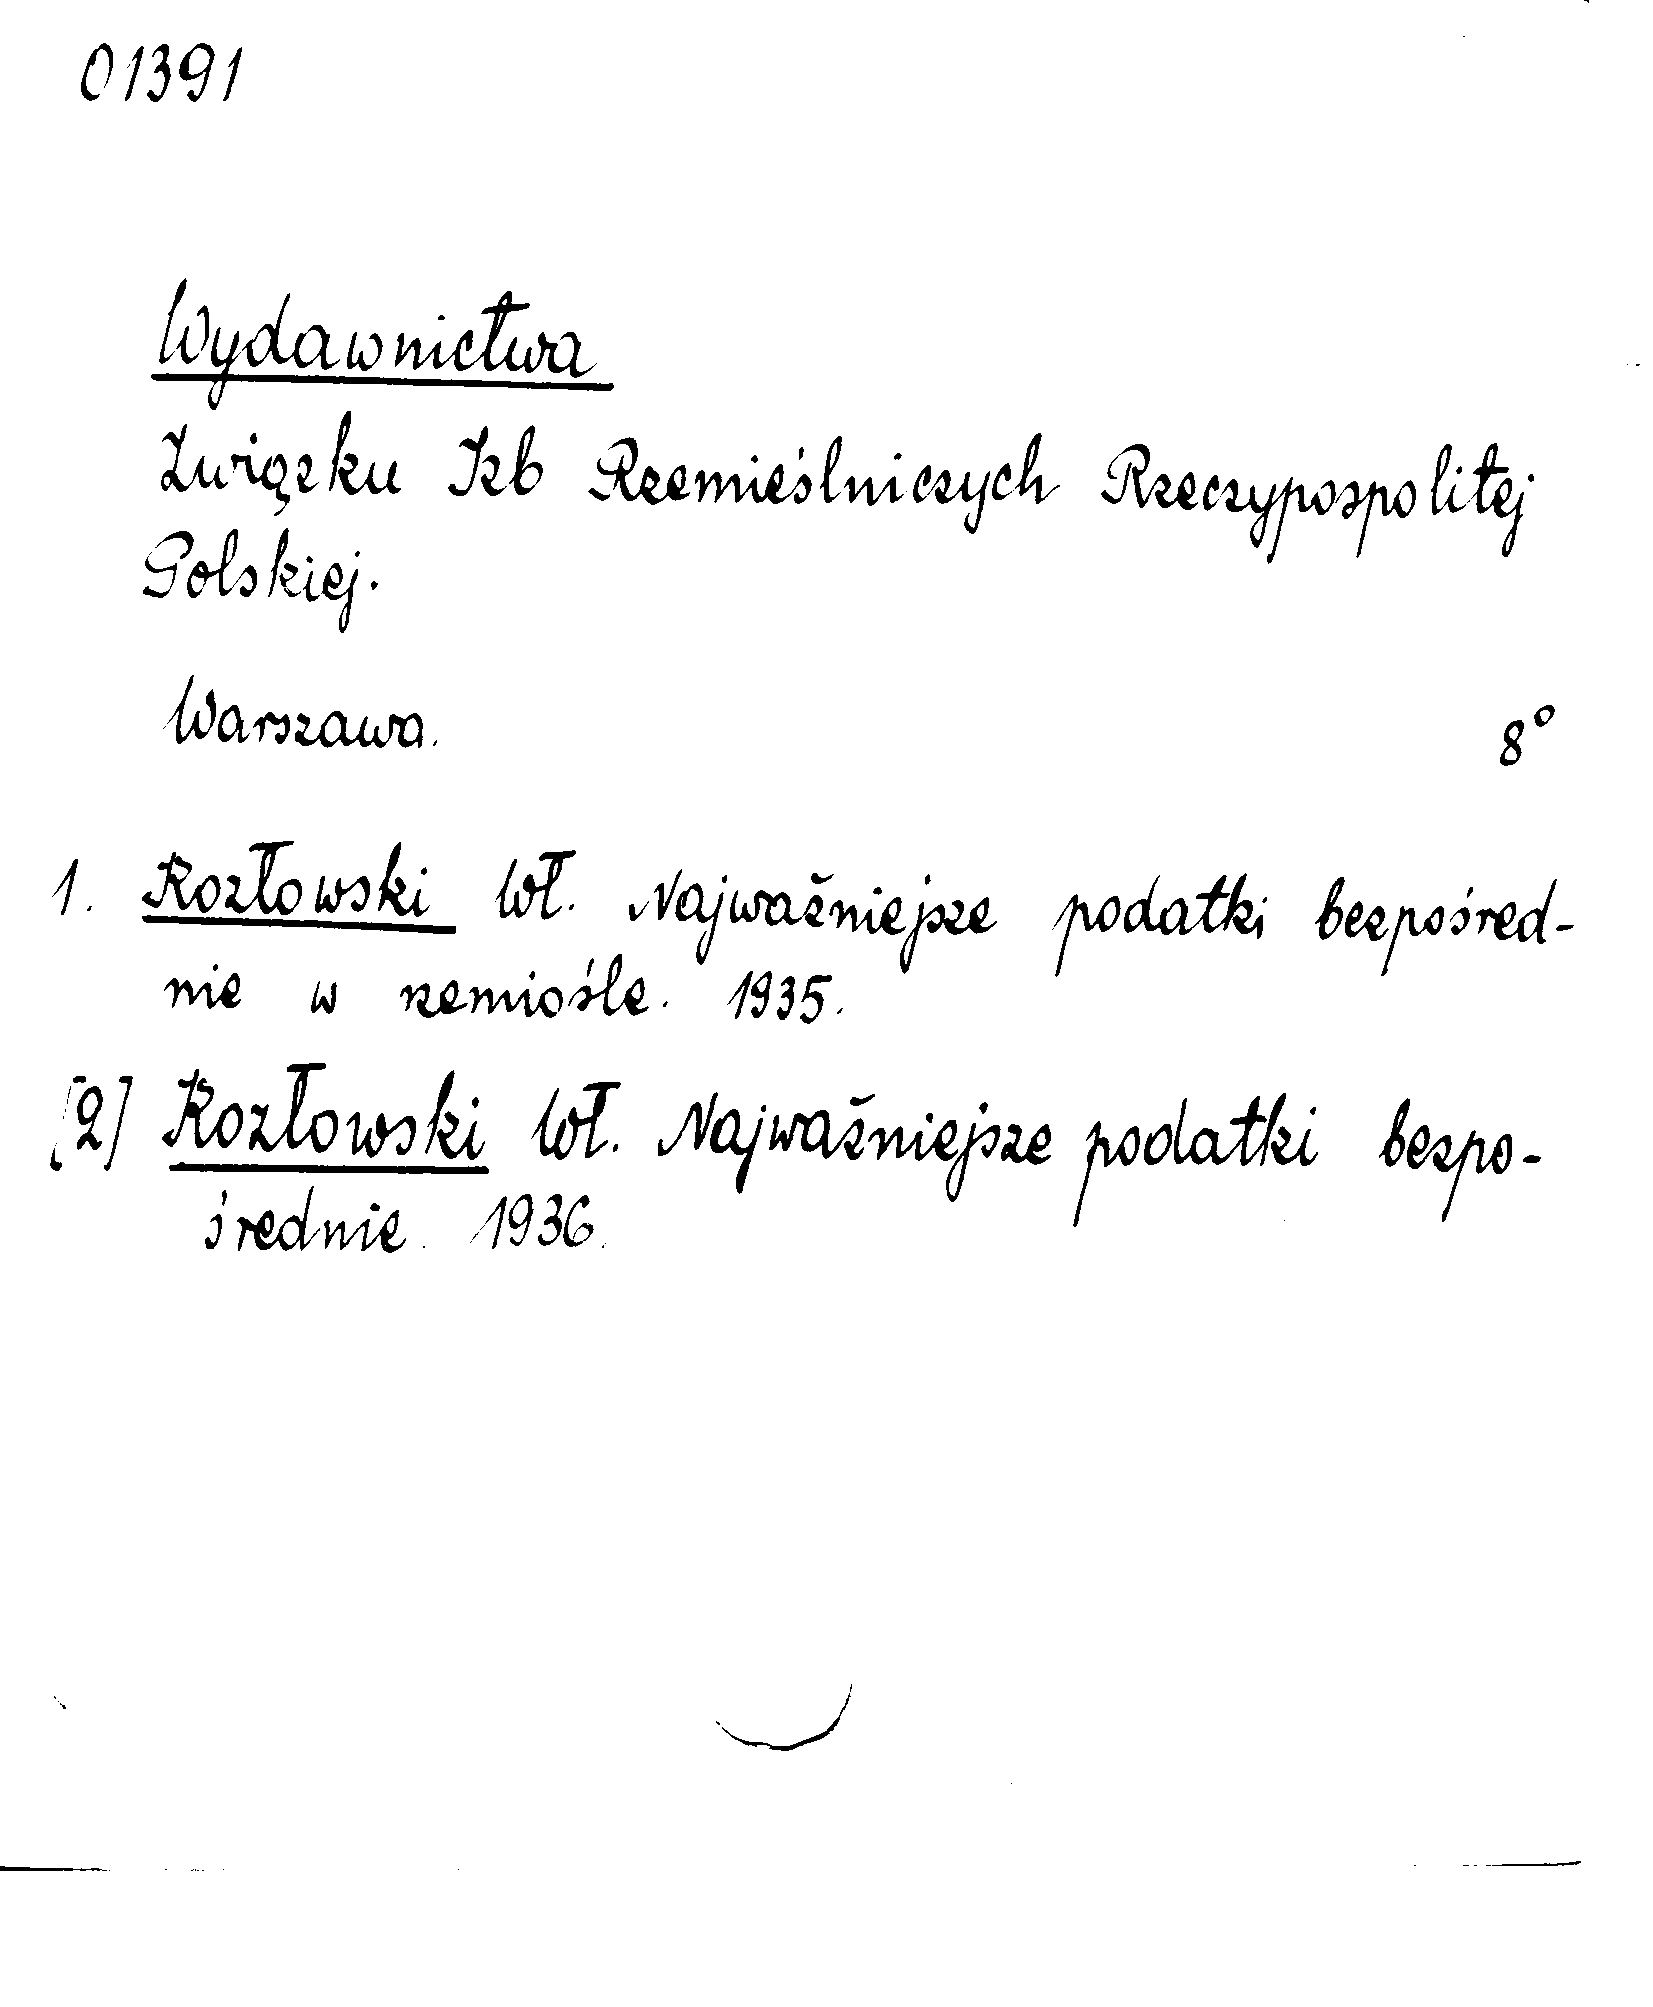 01391
Wydawnictwa
Związku Izb Rzemieślniczych Rzeczypospolitej
Polskiej.
Warszawa. 8°
1. Kozłowski Wł. Najważniejsze podatki bezpośred-
nie w rzemiośle. 1935.
[2] Kozłowski Wł. Najważniejsze podatki bezpo-
średnie. 1936.